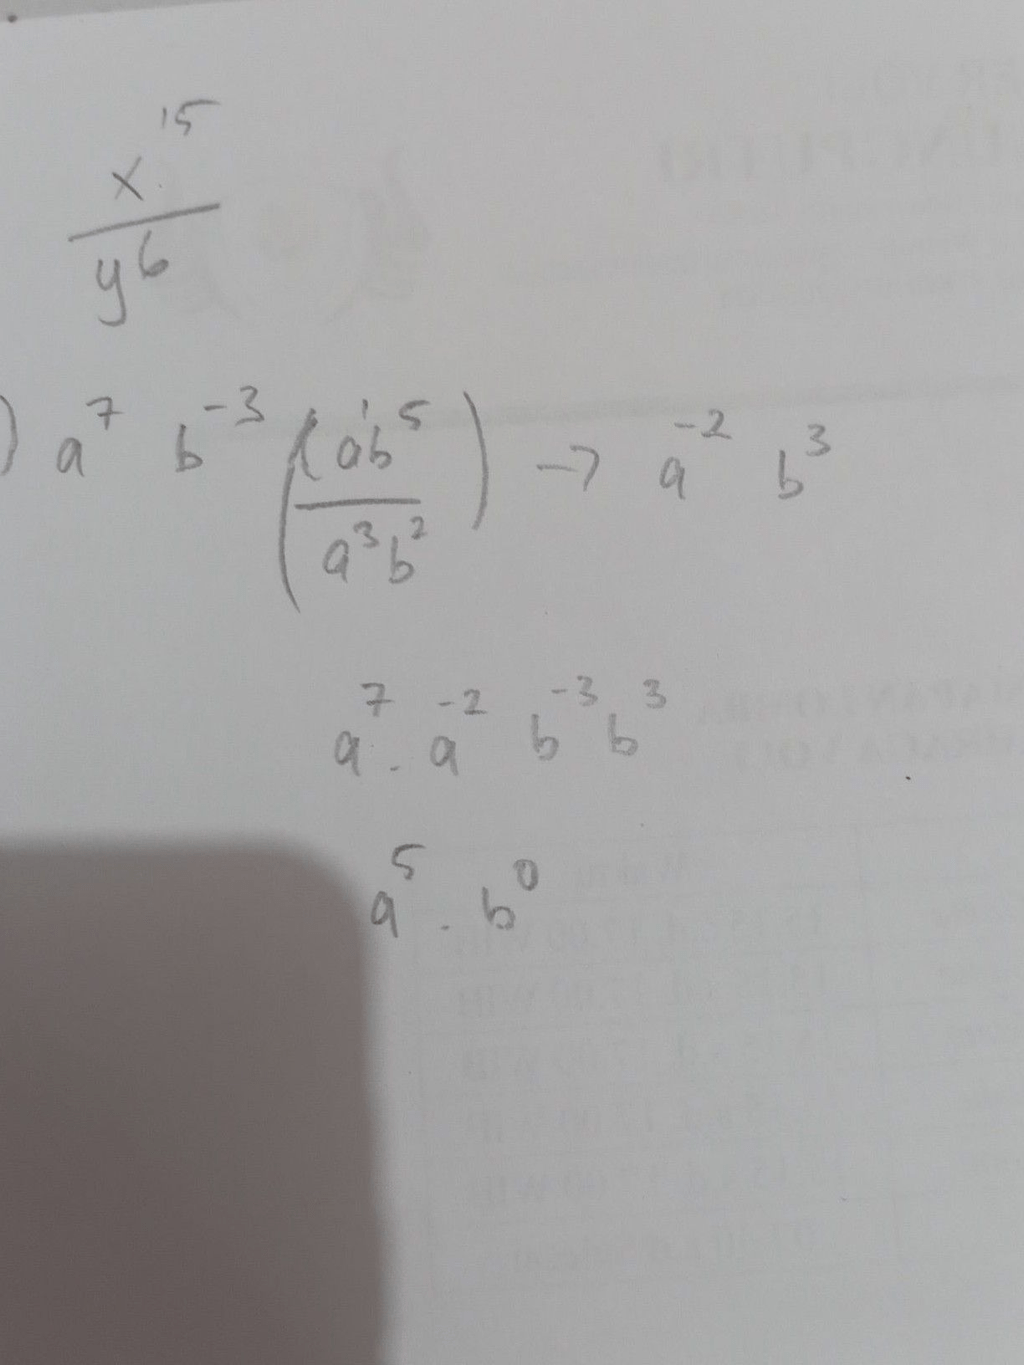 x^15
y^6
) a^7 b^-3 ( a^1b^5 / a^3b^2 ) → a^-2 b^3
a^7 . a^-2 b^-3 b^3
a^5 . b^0